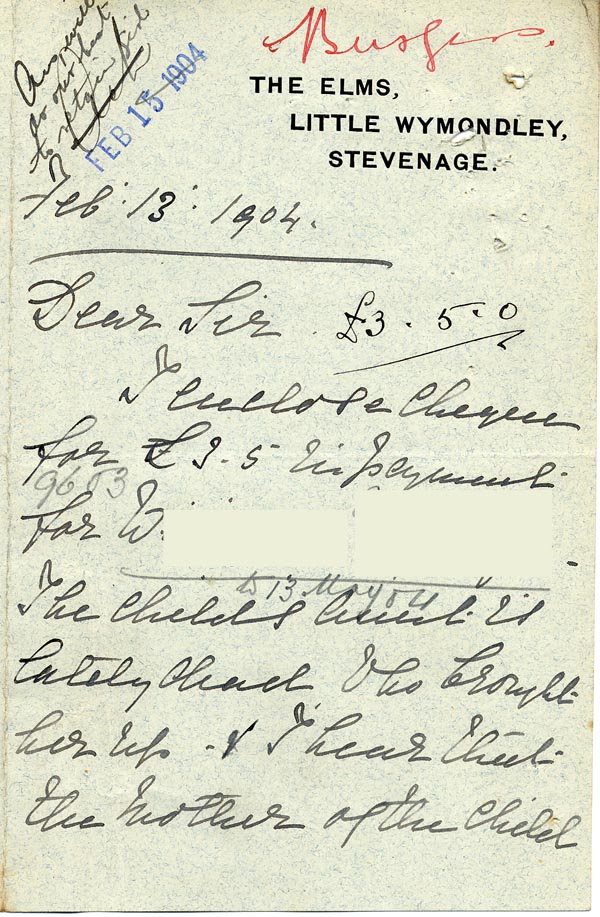 Burgess.
Ans will
do our best
to retain
FEB 15 1904
THE ELMS,
LITTLE WYMONDLEY,
STEVENAGE.
Feb: 13: 1904.
Dear Sir £3.5.0
I enclose cheque
for £3.5 in payment
9603
for W.
to 13 May 04
The child's Aunt is
lately dead who brought
her up - & I hear that
the Mother of the child